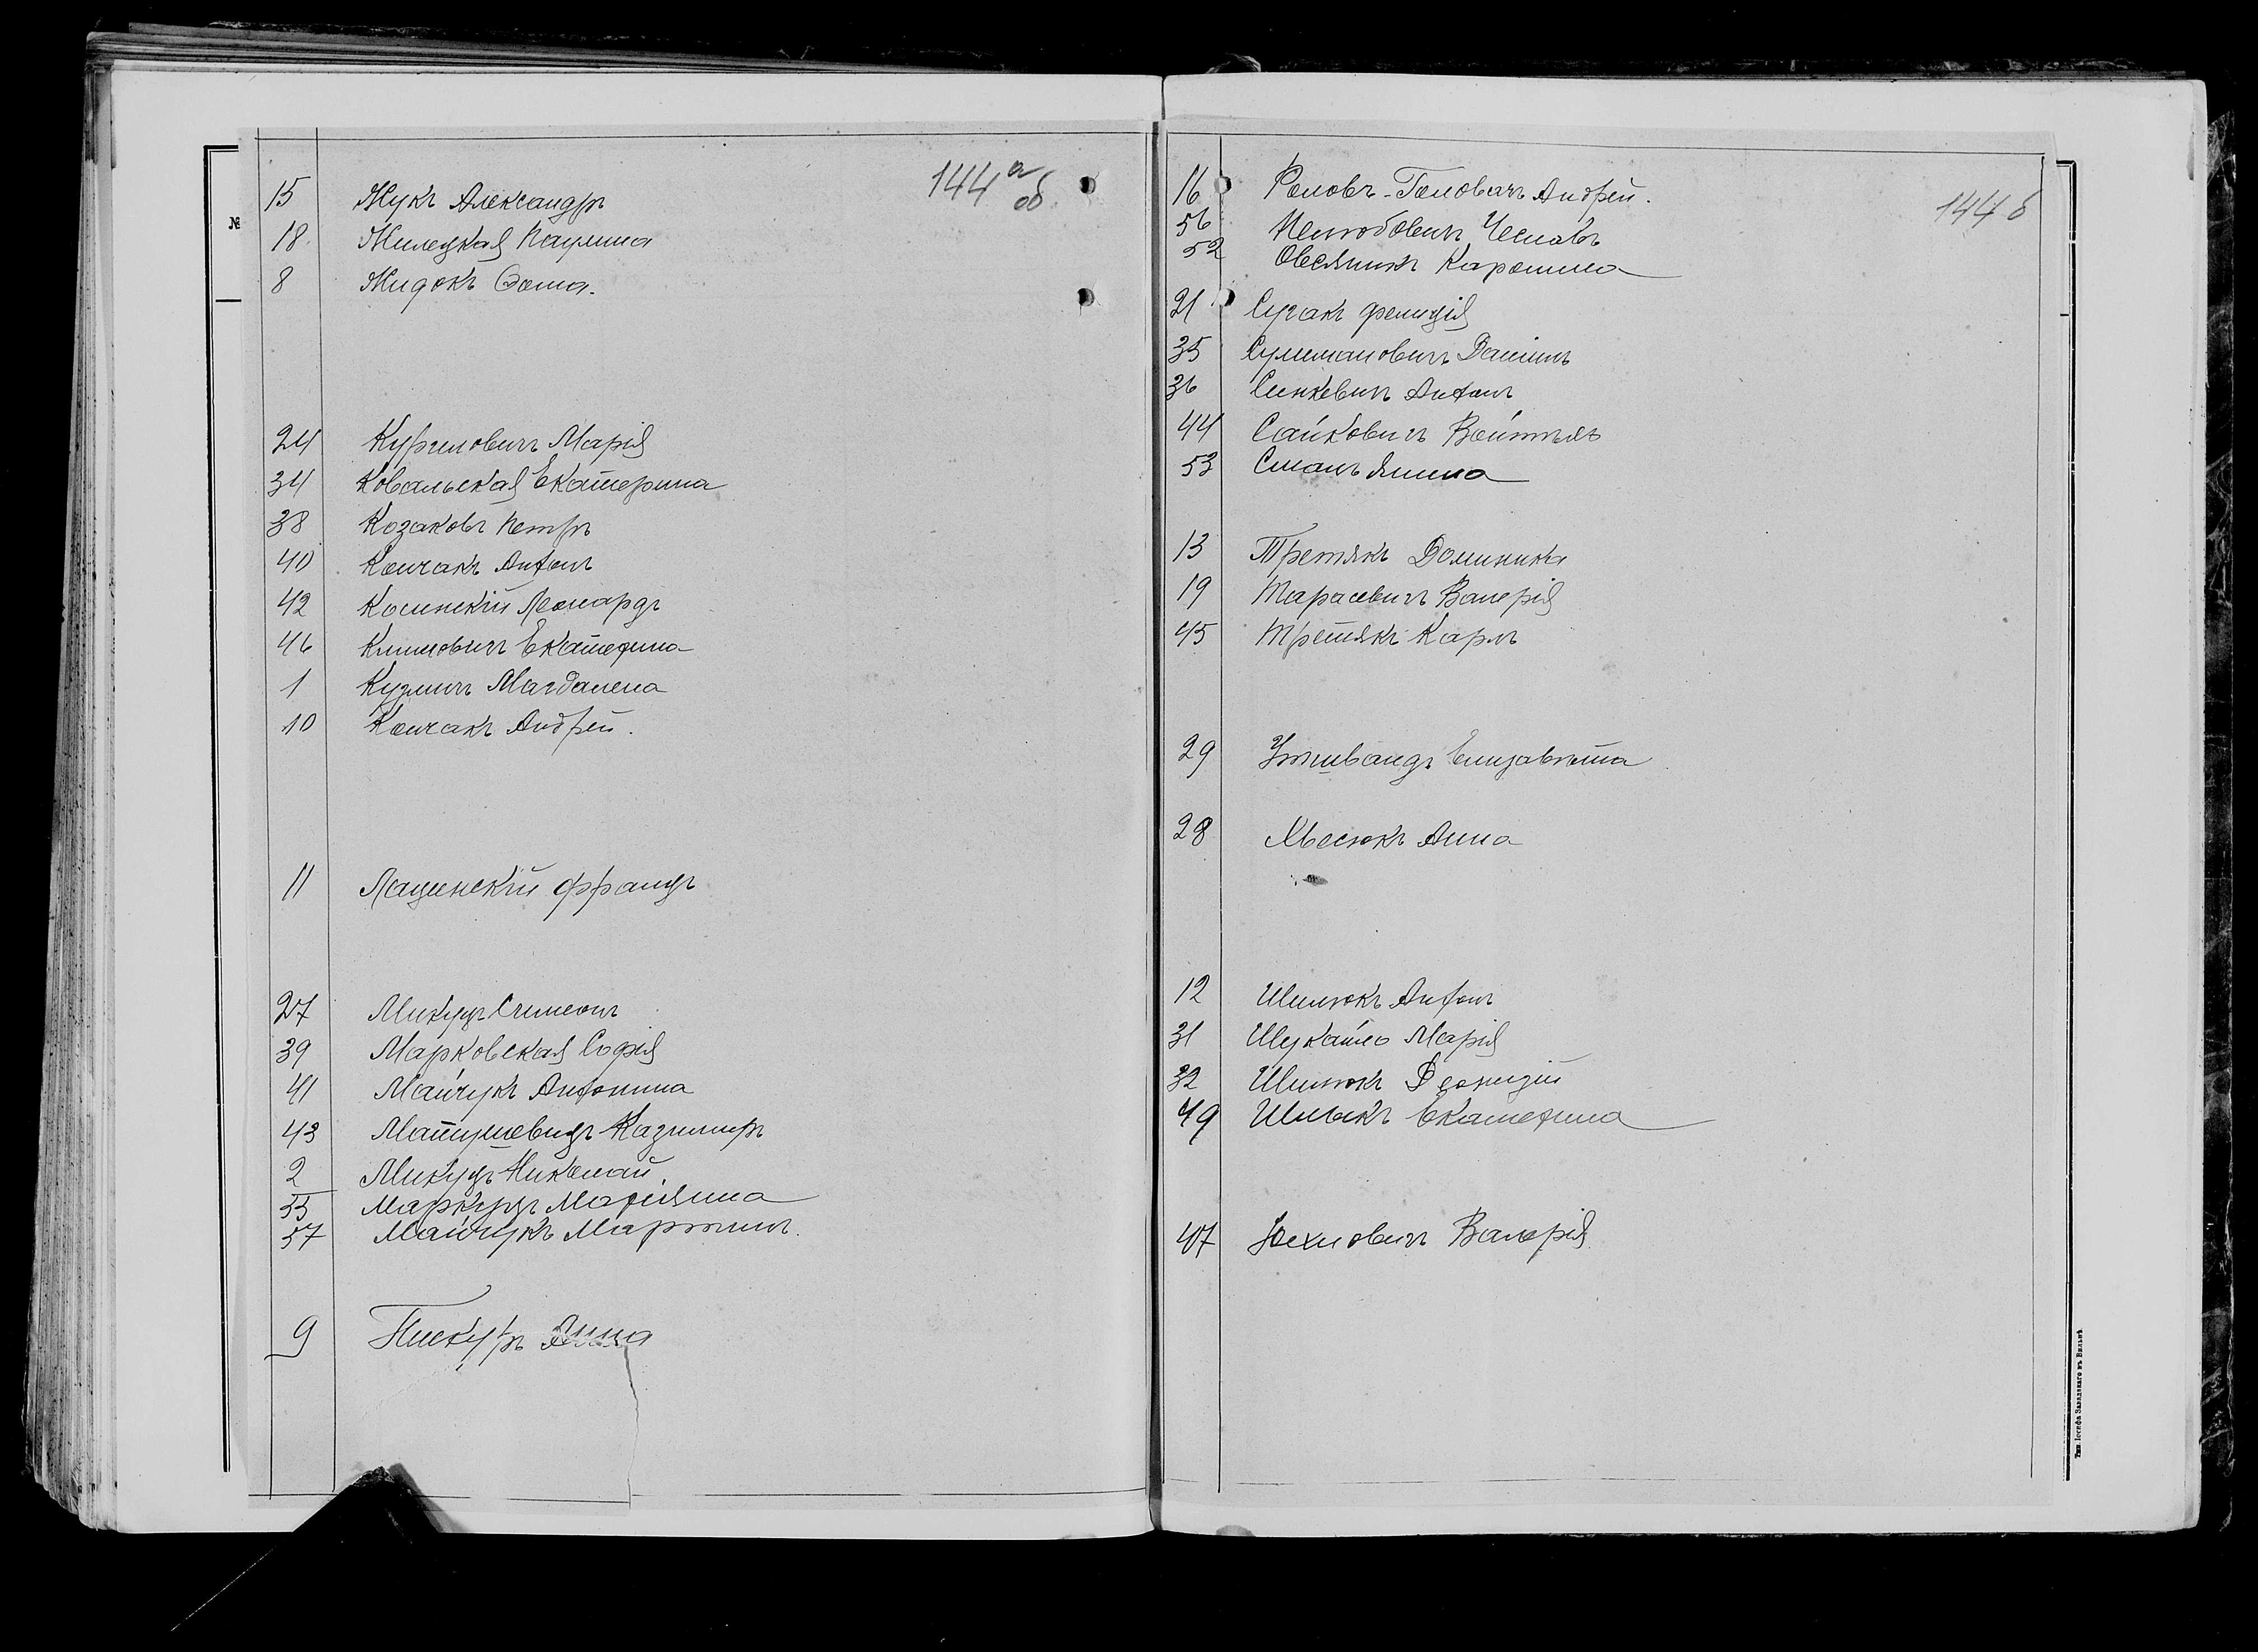 144 а об
№
15 Жукъ Александръ
18 Жилецкая Паулина
8 Жидокъ Ѳома.
24 Куриловичъ Марія
34 Ковальская Екатерина
38 Козаковъ Петръ
40 Кончакъ Антонъ
42 Косинскій Леонардъ
46 Климовичъ Екатерина
1 Кузмичъ Магдалена
10 Кончакъ Андрей.
11 Лащинскій Францъ
27 Микуцъ Симеонъ
39 Марковская Софія
41 Майчукъ Антонина
43 Матушевицъ Казимиръ
2 Микуцъ Николай
55 Маркуцъ Маріянна
57 Майчукъ Мартинъ.
9 Пискуръ Анна
144 б
16 Роловъ-Головачъ Андрей.
56 Чеславъ
52 Овсяникъ Каролина
21 Сугакъ Фелиція
35 Сулимановичъ Даніилъ
36 Синкевичъ Антонъ
44 Сайковичъ
53 Сманъ Янина
13 Третякъ Доминикъ
19 Тарасевичъ Валерія
45 Третякъ Карлъ
29 Елизавета
28 Хвесюкъ Анна
12 Шилюкъ Антонъ
31 Шукайло Марія
32 Шилюкъ Діонизій
49 Шлыкъ Екатерина
47 Юхновичъ Валерія
Тип. Іосифа Завадзкаго въ Вильнѣ